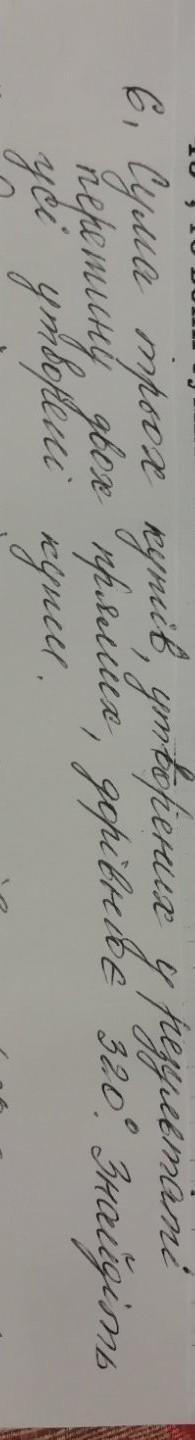 6, Сума трьох кутів, утворених у результаті
перетину двох прямих, дорівнює 320°. Знайдіть
усі утворені кути.